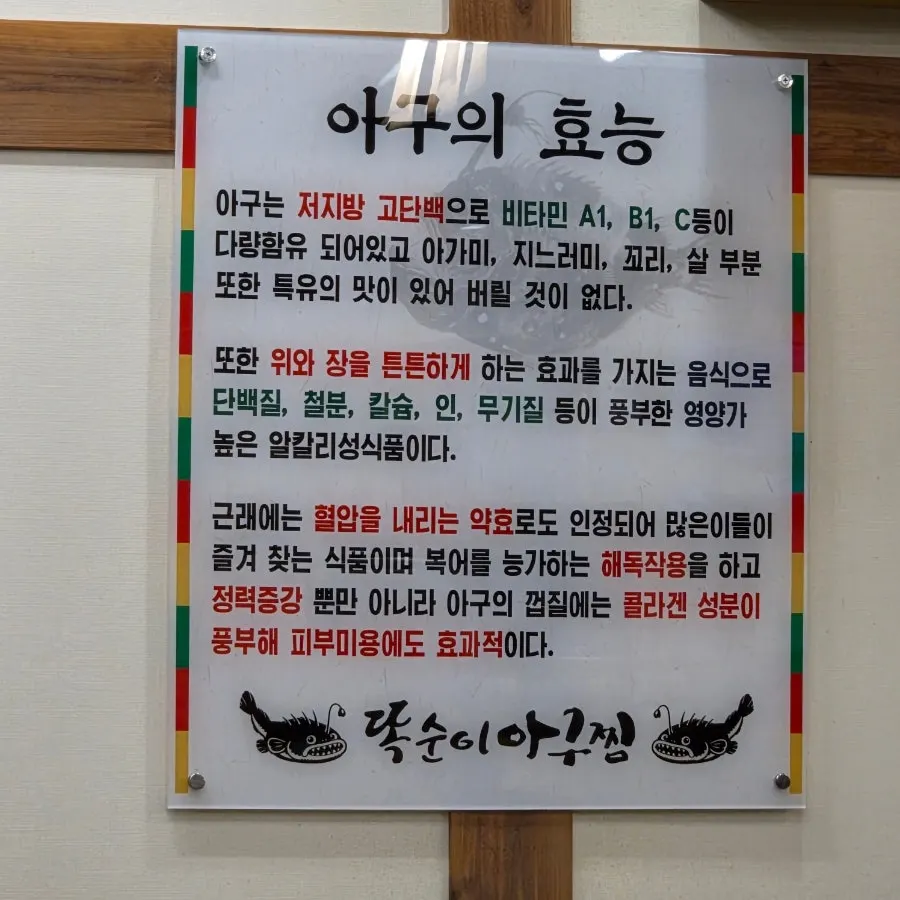 아구의 효능
아구는 저지방 고단백으로 비타민 A1, B1, C등이
다량함유 되어있고 아가미, 지느러미, 꼬리, 살 부분
또한 특유의 맛이 있어 버릴 것이 없다.
또한 위와 장을 튼튼하게 하는 효과를 가지는 음식으로
단백질, 철분, 칼슘, 인, 무기질 등이 풍부한 영양가
높은 알칼리성식품이다.
근래에는 혈압을 내리는 약효로도 인정되어 많은이들이
즐겨 찾는 식품이며 복어를 능가하는 해독작용을 하고
정력증강 뿐만 아니라 아구의 껍질에는 콜라겐 성분이
풍부해 피부미용에도 효과적이다.
똑순이아구찜